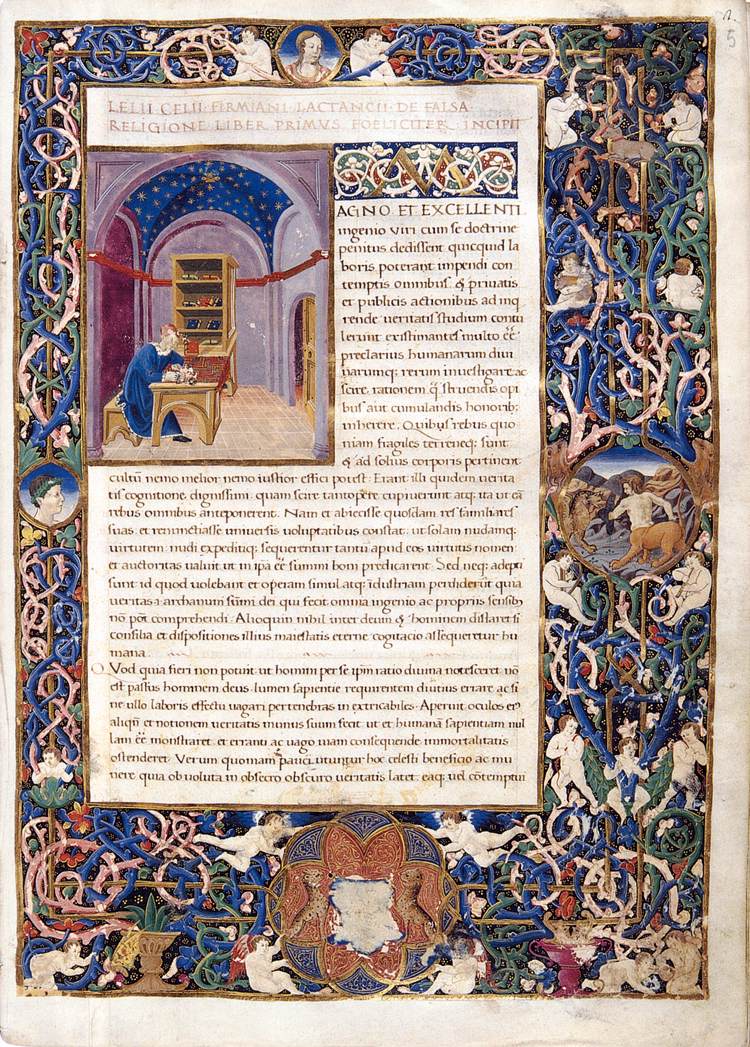 5
LELII CELII FIRMIANI LACTANCII DE FALSA
RELIGIONE LIBER PRIMUS FOELICITER INCIPIT
M
AGNO ET EXCELLENTI
ingenio viri cum se doctrine
penitus dedissent quicquid la
boris poterant impendi con
temptis omnibus & privatis
et publicis actionibus ad inq
rende veritatis studium contu
lerunt existimantes multo eē
preclarius humanarum divi
narumq; rerum investigare ac
scire rationem q̄ struendis opi
bus aut cumulandis honorib;
inherere. Quibus rebus quo
niam fragiles terreneq; sunt
& ad solius corporis pertinent
cultū nemo melior nemo iustior effici potest. Erant illi quidem verita
tis cognitione dignissimi quam scire tantopere cupiverunt atq; ita ut eā
rebus omnibus anteponerent. Nam et abiecisse quosdam res familiares
suas et renunciasse universis voluptatibus constat ut solam nudamq;
virtutem nudi expeditiq; sequerentur tantū apud eos virtutis nomen
et auctoritas valuit ut in ipā eē summi boni predicarent. Sed neq; adepti
sunt id quod volebant et operam simul atq; īdustriam perdiderūt quia
veritas archanum sūmi dei qui fecit omnia ingenio ac propriis sensib;
nō pōt comprehendi. Alioquin nihil inter deum & hominem distaret si
consilia et dispositiones illius maiestatis eterne cogitacio assequeretur hu
mana.
QVod quia fieri non potuit ut homini per se ipm̄ ratio divina notesceret nō
est passus hominem deus lumen sapientie requirentem diutius errare ac si
ne ullo laboris effectu vagari per tenebras inextricabiles. Aperuit oculos ei
aliqn̄ et notionem veritatis munus suum fecit ut et humanā sapientiam nul
lam eē monstraret et erranti ac vago viam consequende immortalitatis
ostenderet. Verum quoniam pauci utuntur hoc celesti beneficio ac mu
nere quia obvoluta in obscuro veritatis latet eaq; vel cōtemptui